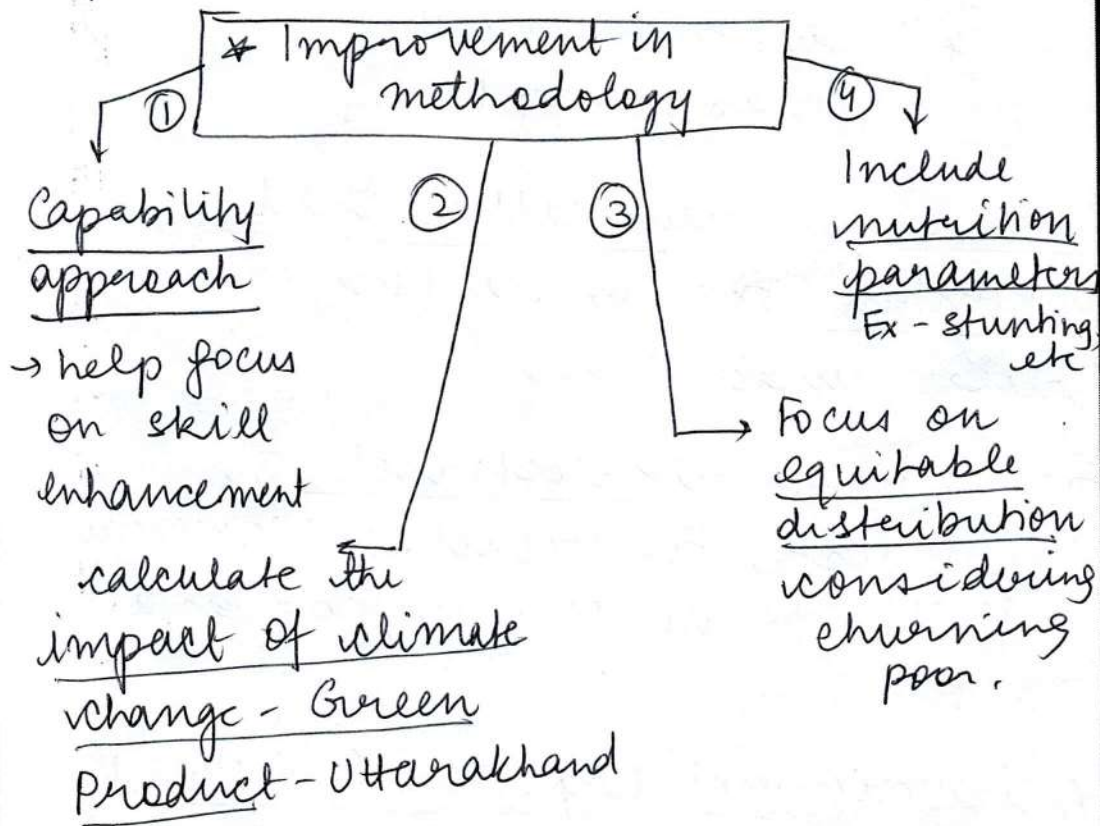 * Improvement in
methodology
①
Capability
approach
→ help focus
on skill
enhancement
②
calculate the
impact of climate
change - Green
Product - Uttarakhand
③
Focus on
equitable
distribution
considering
churning
poor.
④
Include
nutrition
parameters
Ex - stunting,
etc